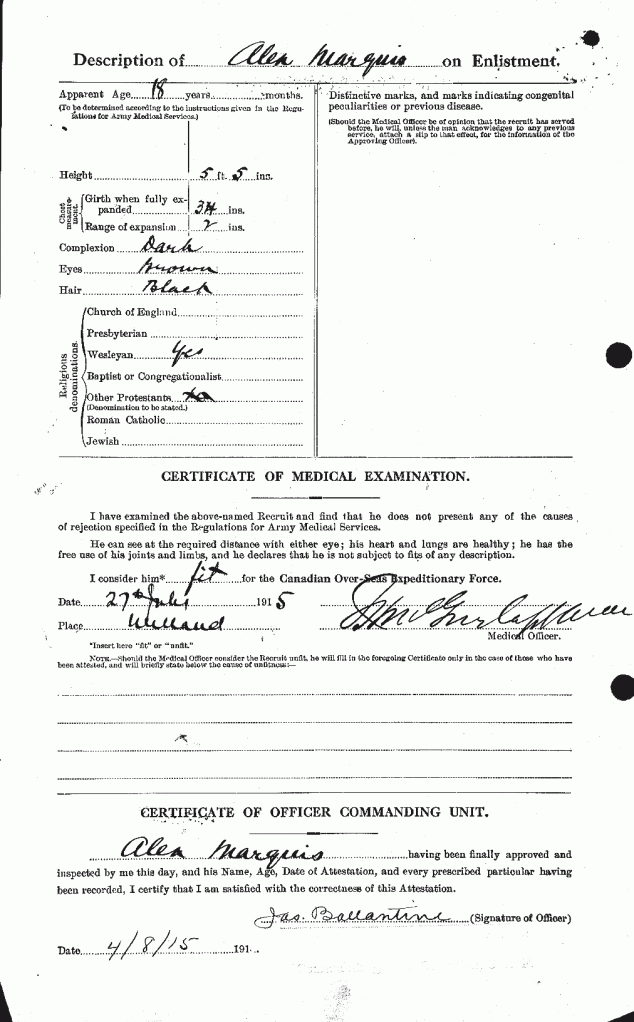 Description of Alex Marquis on Enlistment.
Apparent Age 18 years months.
(To be determined according to the instructions given in the Regulations for Army Medical Services.)
Height 5 ft. 5 ins.
Chest measurement.
Girth when fully expanded 34 ins.
Range of expansion 2 ins.
Complexion Dark
Eyes Brown
Hair Black
Religious denominations.
Church of England
Presbyterian
Wesleyan Yes
Baptist or Congregationalist
Other Protestants
(Denomination to be stated.)
Roman Catholic
Jewish
Distinctive marks, and marks indicating congenital
peculiarities or previous disease.
(Should the Medical Officer be of opinion that the recruit has served
before, he will, unless the man acknowledges to any previous
service, attach a slip to that effect, for the information of the
Approving Officer).
CERTIFICATE OF MEDICAL EXAMINATION.
I have examined the above-named Recruit and find that he does not present any of the causes
of rejection specified in the Regulations for Army Medical Services.
He can see at the required distance with either eye; his heart and lungs are healthy; he has the
free use of his joints and limbs, and he declares that he is not subject to fits of any description.
I consider him* fit for the Canadian Over-Seas Expeditionary Force.
Date 27th July 1915
Place Welland
Medical Officer.
*Insert here "fit" or "unfit."
NOTE.—Should the Medical Officer consider the Recruit unfit, he will fill in the foregoing Certificate only in the case of those who have
been attested, and will briefly state below the cause of unfitness:—
CERTIFICATE OF OFFICER COMMANDING UNIT.
Alex Marquis having been finally approved and
inspected by me this day, and his Name, Age, Date of Attestation, and every prescribed particular having
been recorded, I certify that I am satisfied with the correctness of this Attestation.
Jas. Ballantine (Signature of Officer)
Date 4/8/15 191